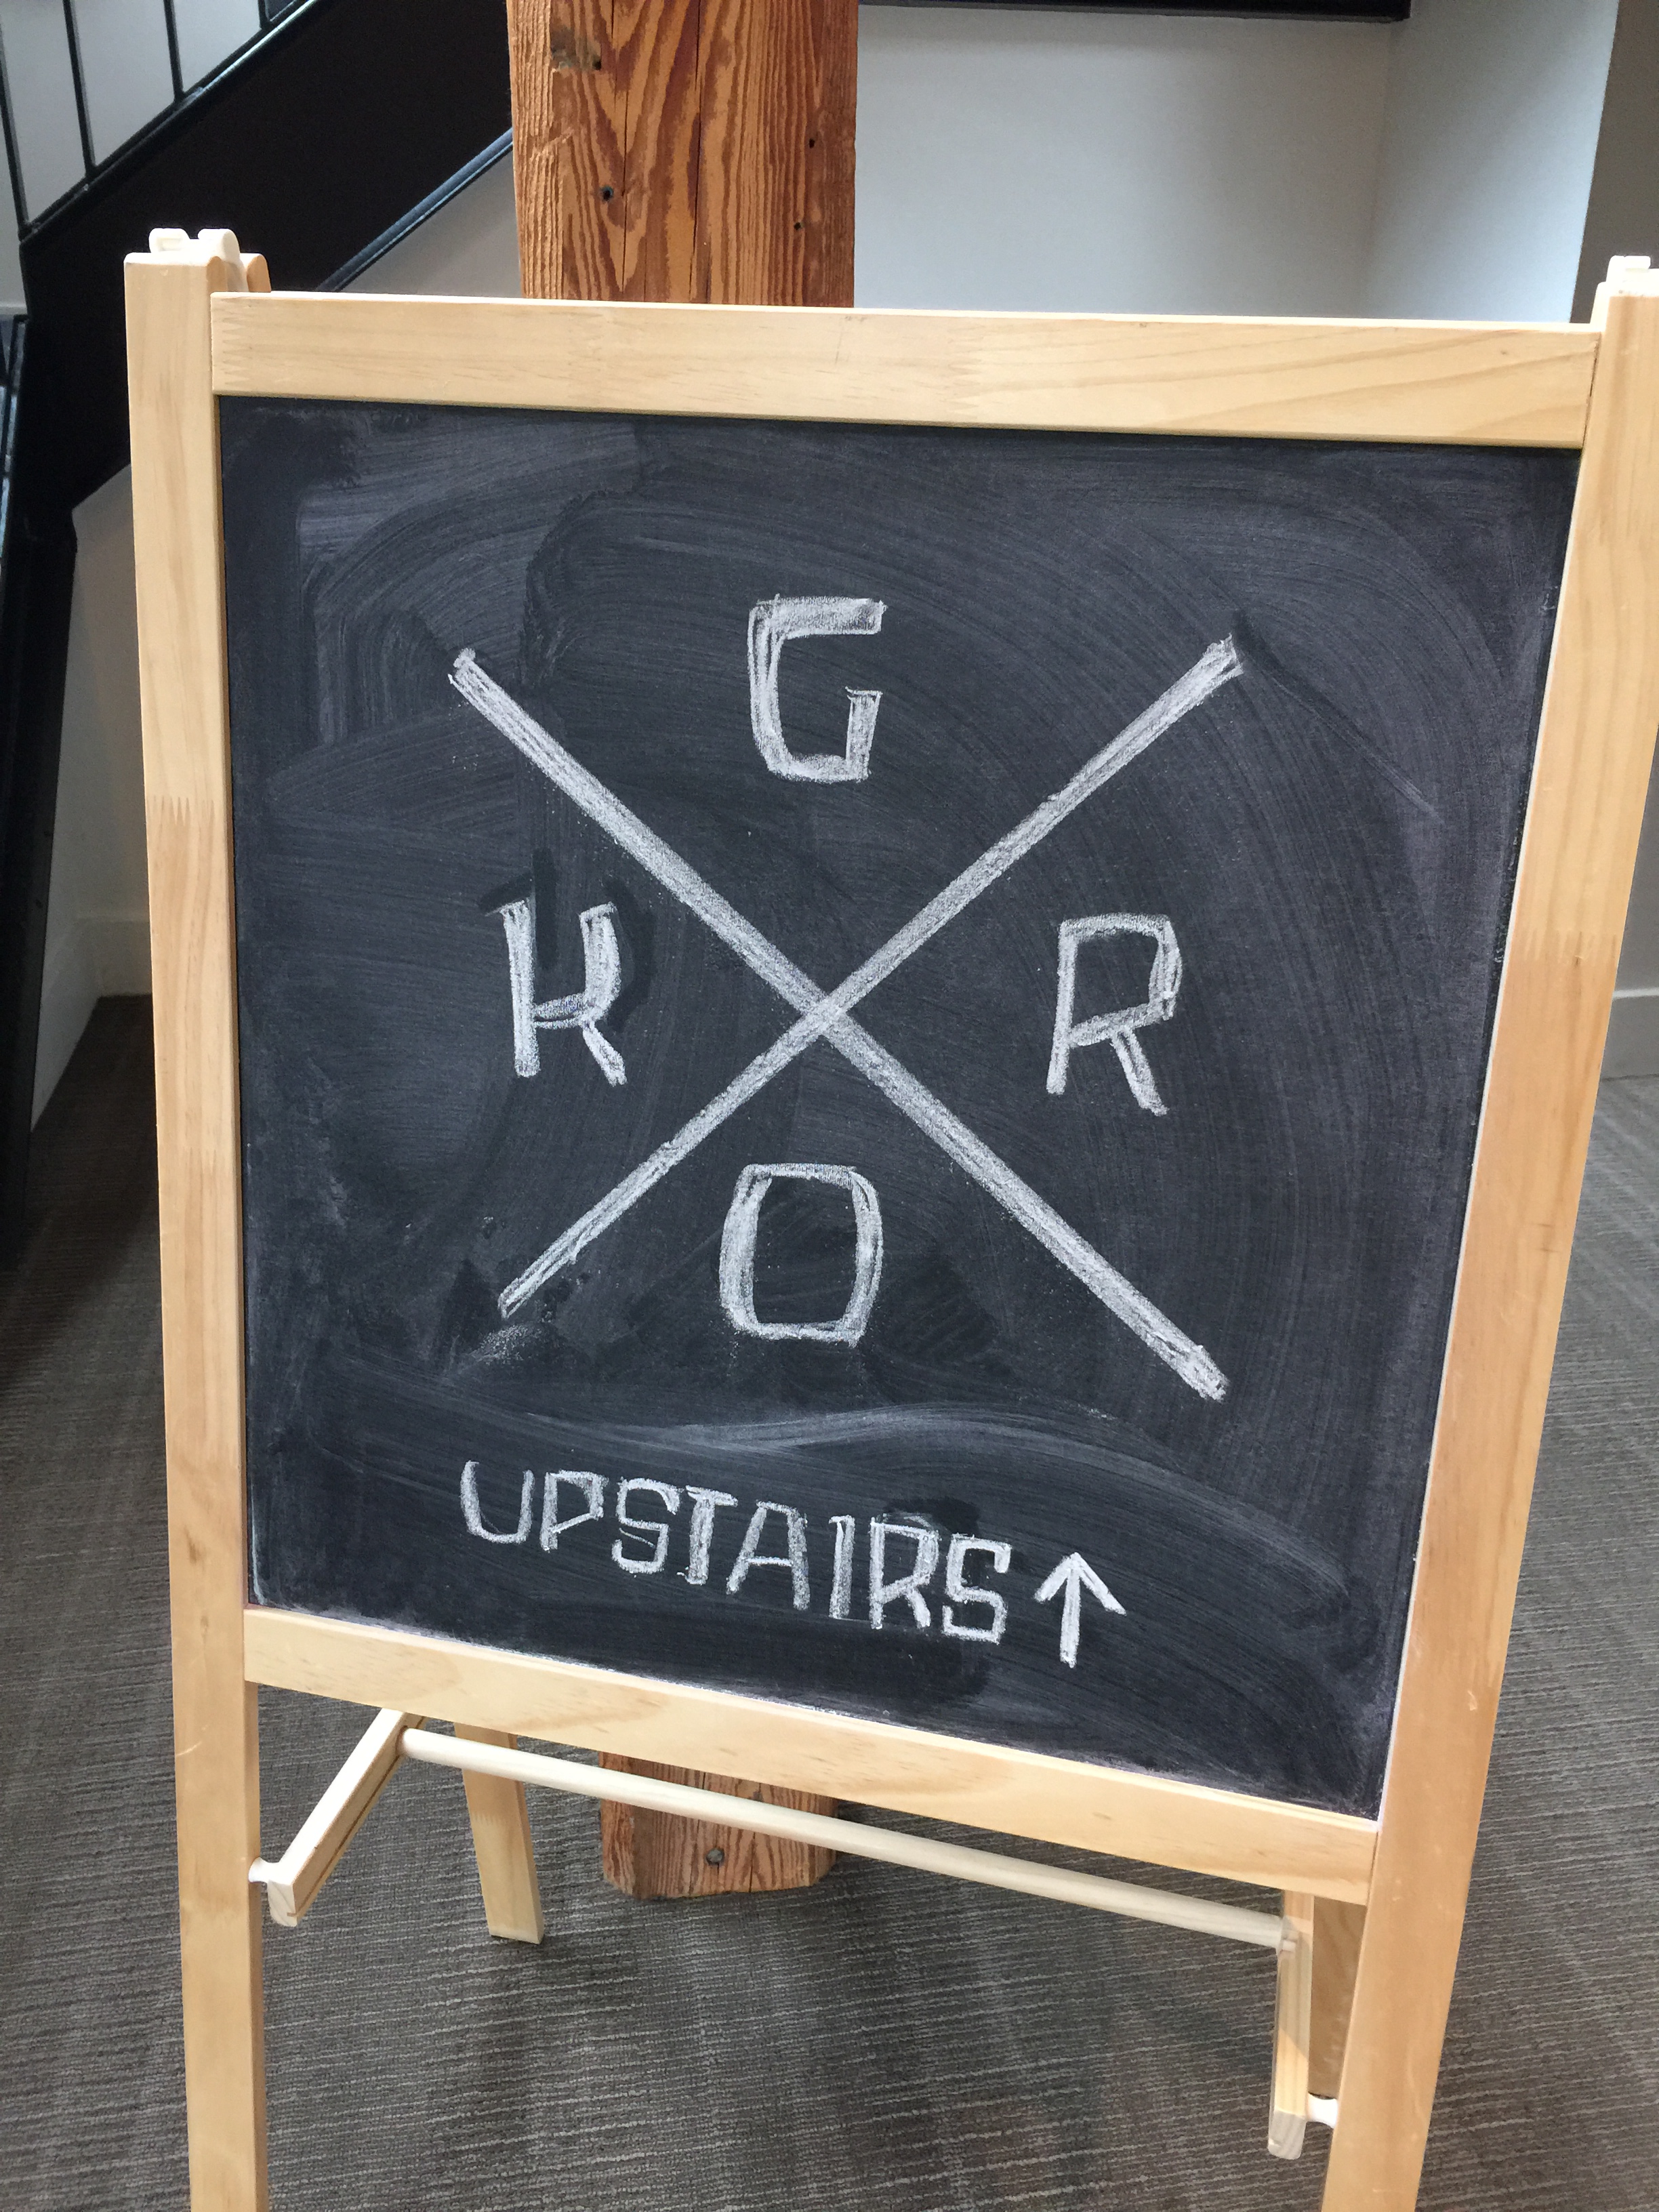 G
K R
O
UPSTAIRS ↑